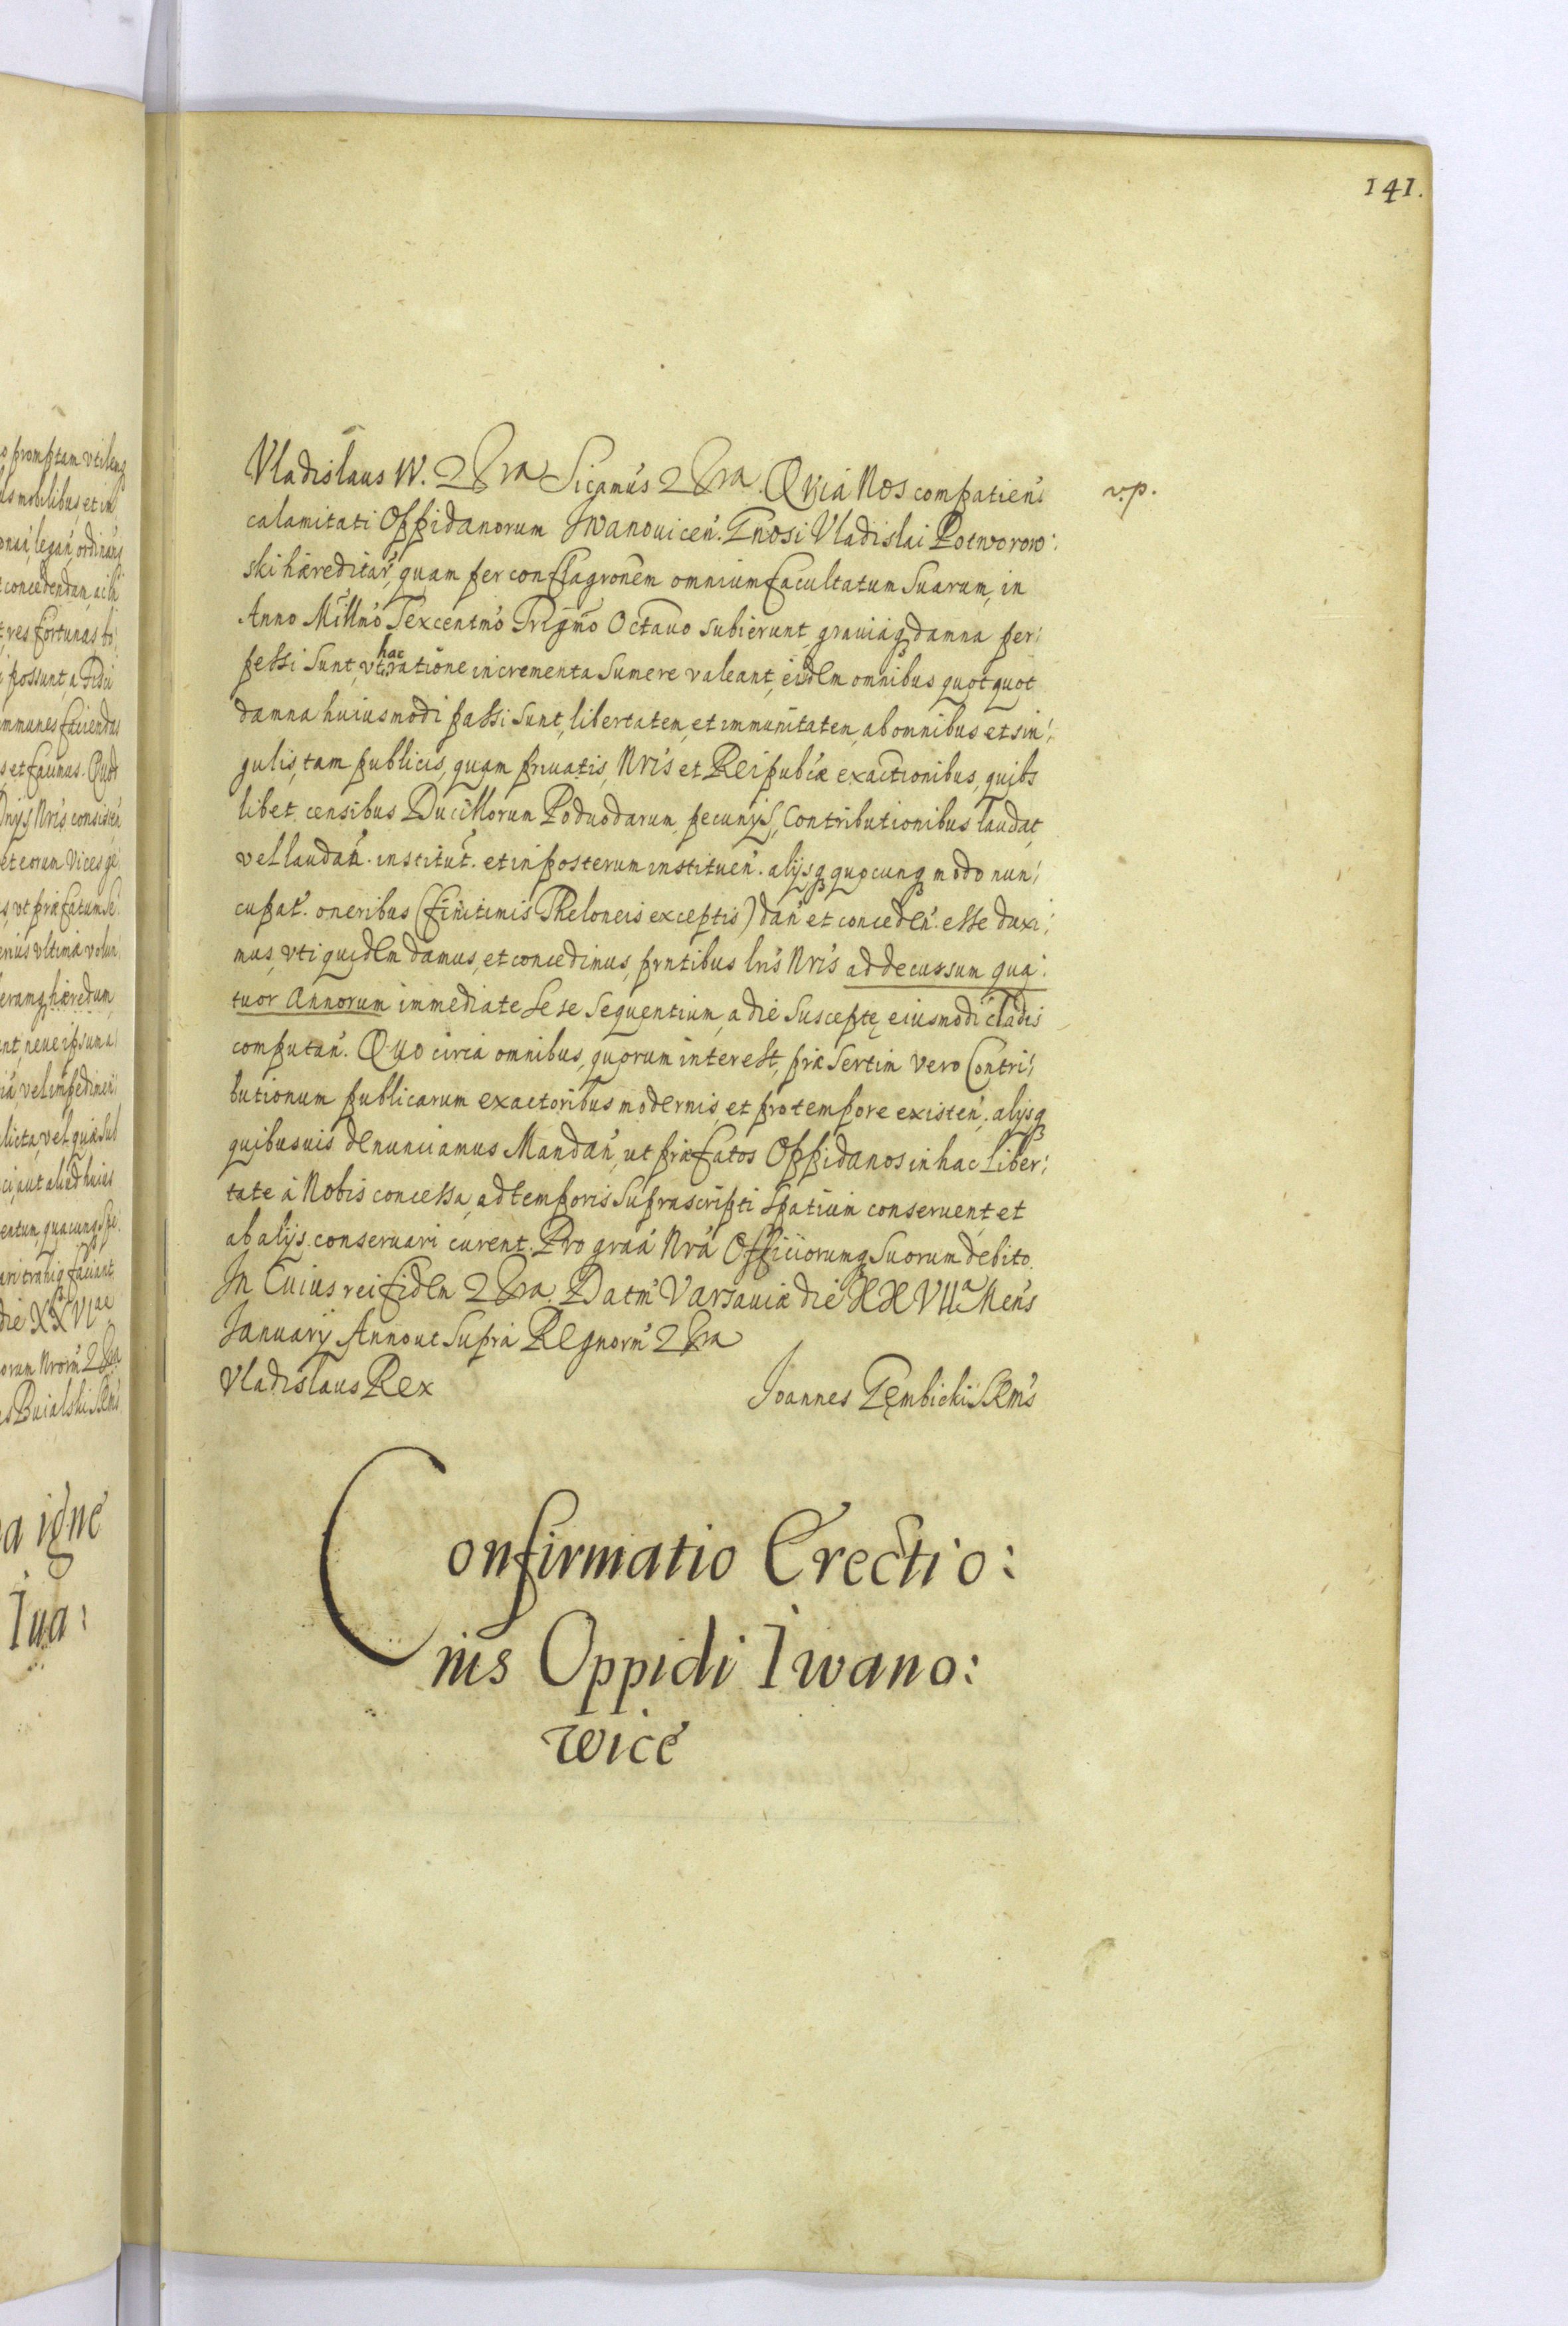 141.
Vladislaus IV. etc̃ra Sigamu's etc̃ra Quia Nos compatien:
calamitati Oppidanorum Iwanouicen̄. Gnosi Vladislai Potworow:
ski hæreditar̄, quam per conflagronem omnium facultatum suarum, in
Anno Millmo Sexcentmo Trigmo Octauo subierunt grauiaq damna per:
pessi sunt, vt hac ratione incrementa sumere valeant, eisdem omnibus quotquot
damna huiusmodi passi sunt, libertatem, et immunitatem, ab omnibus et sin:
gulis, tam publicis, quam priuatis, Nris et Reipubcæ exactionibus, quibs
libet censibus Ducillorum Poduodarum, pecunijs, Contributionibus laudat,
vel laudan̄. institut̄. et in posterum instituen̄. alijsq quocunq modo nun:
cupat̄. oneribus (finitimis Theloneis exceptis) dan̄ et conceden̄. esse duxi:
mus, vti quidem damus, et concedimus, pr̄ntibus lris Nris ad decussum qua:
tuor Annorum immediate sese sequentium, a die susceptę eiusmodi cladis
computan̄. Quo circa omnibus, quorum interest, præsertim vero Contri:
butionum publicarum exactoribus modernis, et pro tempore existen̄. alijsq
quibusuis denunciamus Mandan̄, ut præfatos Oppidanos in hac liber:
tate à Nobis concessa, ad temporis suprascripti spatium conseruent et
ab alijs conseruari curent. Pro graa Nra Officiorumq suorum debito.
In Cuius rei fidem etc̃ra Datm Varsauiæ die XXVIIa Mens
Ianuarij Anno ut supra Regnorm etc̃ra
Vladislaus Rex Ioannes Gembicki SRms
v.p.
Confirmatio Erectio:
nis Oppidi Iwano:
wice